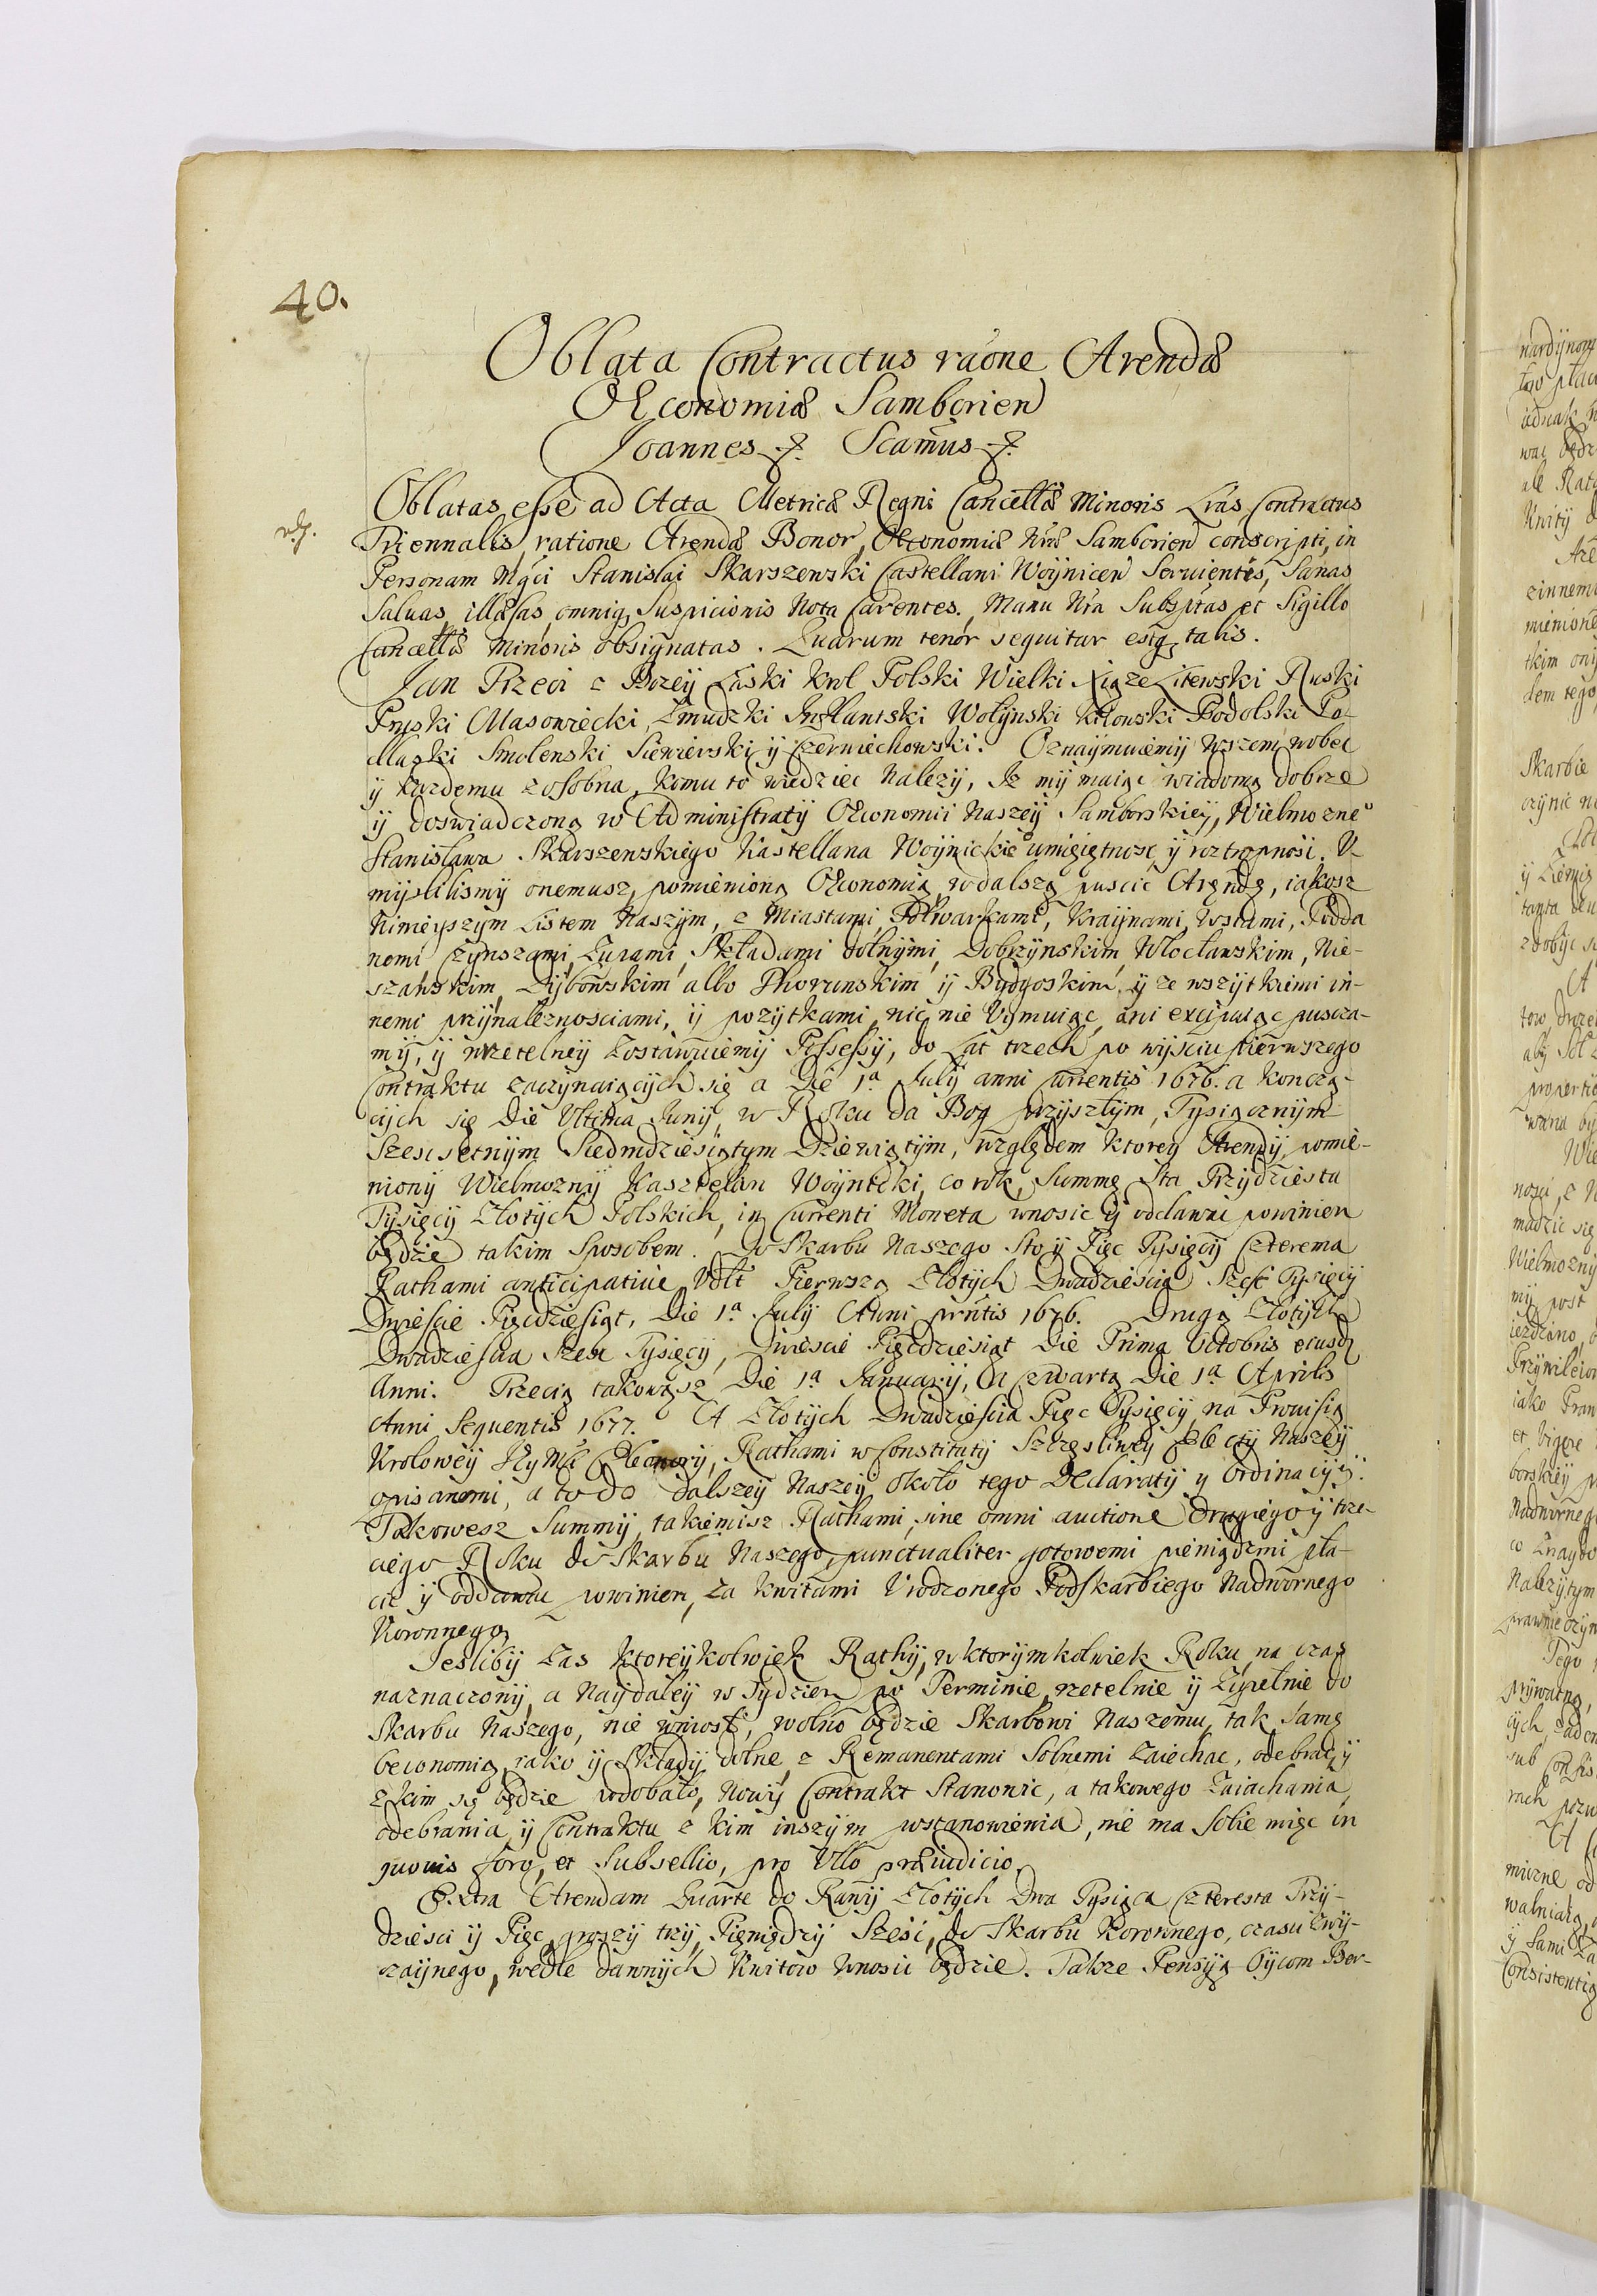 40.
Oblata Contractus raõne Arendæ
Œconomiæ Samborien
Joannes etc. Scamus etc.
Oblatas esse ad Acta Metricæ Regni Cancellæ Minoris Lras Contractus
Triennalis, ratione Arendæ Bonor, Œconomiæ Nræ Samborien conscripti, in
Personam Mgci Stanislai Skarszewski Castellani Woynicen Seruientes, Sanas
Saluas, illæsas, omniq Suspicionis Nota Carentes, Manu Nra Subsptas et Sigillo
Cancellæ Minoris obsignatas. Quarum tenor sequitur estq talis.
Jan Trzeci z Bozey Łaski Krol Polski Wielki Xiąze Litewski Ruski
Pruski Mazowiecki Zmudzki Inflantski Wolynski Kiiowski Podolski Po-
dlaski Smolenski Siewierski y Czerniechowski. Oznaymuiemy wszem wobec
y kazdemu zosobna, komu to wiedziec nalezy, Iz my maiąc wiadomą dobrze
y doswiadczoną w Administraty Œconomii Naszey Samborskiey, Wielmozneo
Stanisława Skarszewskiego Kastellana Woynickieo umieiętnosc y roztropnosc. V-
myslilismy onemusz, pomienioną Œconomią w dalszą puscic Arędę, iakosz
Ninieyszym Listem Naszym, z Miastami, Folwarkami, Kraynami, Wsiami, Podda
nemi Czynszami, Zupami, Składami solnymi, Dobrzynskim, Włocławskim, Nie-
szawskim, Dybowskim albo Thorunskim y Bydgoskim, y ze wszytkiemi in-
nemi przynaleznosciami, y pozytkami, nic nie Vymuiąc, ani excypuiąc puscza-
my, y w rzetelney Zostawuiemy Possessyi, do Lat trzech po wysciu pierwszego
Contraktu zaczynaiących się a Die 1ª July anni Currentis 1676. a koncżą-
cych się Die Vltima Juny, w Roku da Bog przyszłym, Tysiącznym
Szescsetnym Siedmdziesiątym Dziewiątym, względem ktorey Arendy, pomie-
niony Wielmozny Kasztelan Woynicki, co rok, Summę Sta Trzydziestu
Tysięcy Złotych Polskich, in Currenti Moneta wnosic y oddawac powinien
będzie takim Sposobem. Do Skarbu Naszego Sto y Pięc Tysięcy Czterema
Rathami anticipatiue Vdlt Pierwszą Złotych Dwadziescia Szesc Tysięcy
Dwiescie Pięcdziesiąt, Die 1ª July Anni prntis 1676. Drugą Złotych
Dwadziescia Szesc Tysięcy, Dwiescie Pięcdziesiąt Die Prima Octobris eiusd
Anni. Trzecią takowąsz Die 1ª January, A Czwartą Die 1ª Aprilis
Anni Sequentis 1677. A Złotych Dwadziescia Pięc Tysięcy, na Prouisią
Krolowey Jeymci Eleonory, Rathami w Constituty Szczęsliwey Electy Naszey
opisanemi, a to do dalszey Naszey około tego Declaraty y Ordinacyey.
Takowesz Summy, takiemisz Rathami, sine omni auctione Drugiego y trze-
ciego Roku do Skarbu Naszego, punctualiter gotowemi pieniądzmi pła-
cic y oddawac powinien, za kwitami Vrodzonego Podskarbiego Nadwornego
Koronnego.
Jesliby Zas ktoreykolwiek Rathy, w ktorymkolwiek Roku, na czas
naznaczony, a Naydaley w Tydzien po Terminie, rzetelnie y Zupełnie do
Skarbu Naszego, nie wniosł, wolno będzie Skarbowi Naszemu, tak samę
Œconomią, iako y Składy solne, z Remanentami Solnemi Zaiechac, odebrac, y
z kim się będzie podobało, Nowy Contrakt Stanowic, a takowego Zaiachania,
odebrania, y Contraktu z kim inszym postanowienia, nie ma Sobie miec in
quouis foro, et Subsellio, pro Vllo præiudicio.
Extra Arendam Quarte do Rawy Złotych Dwa Tysiąca Czteresta Trzy-
dziesci y Pięc, groszy trzy, Pieniędzy Szesc, do Skarbu Koronnego, czasu Zwy-
czaynego, wedle dawnych Kwitow Wnosic będzie. Takze Pensyą Oycom Ber-